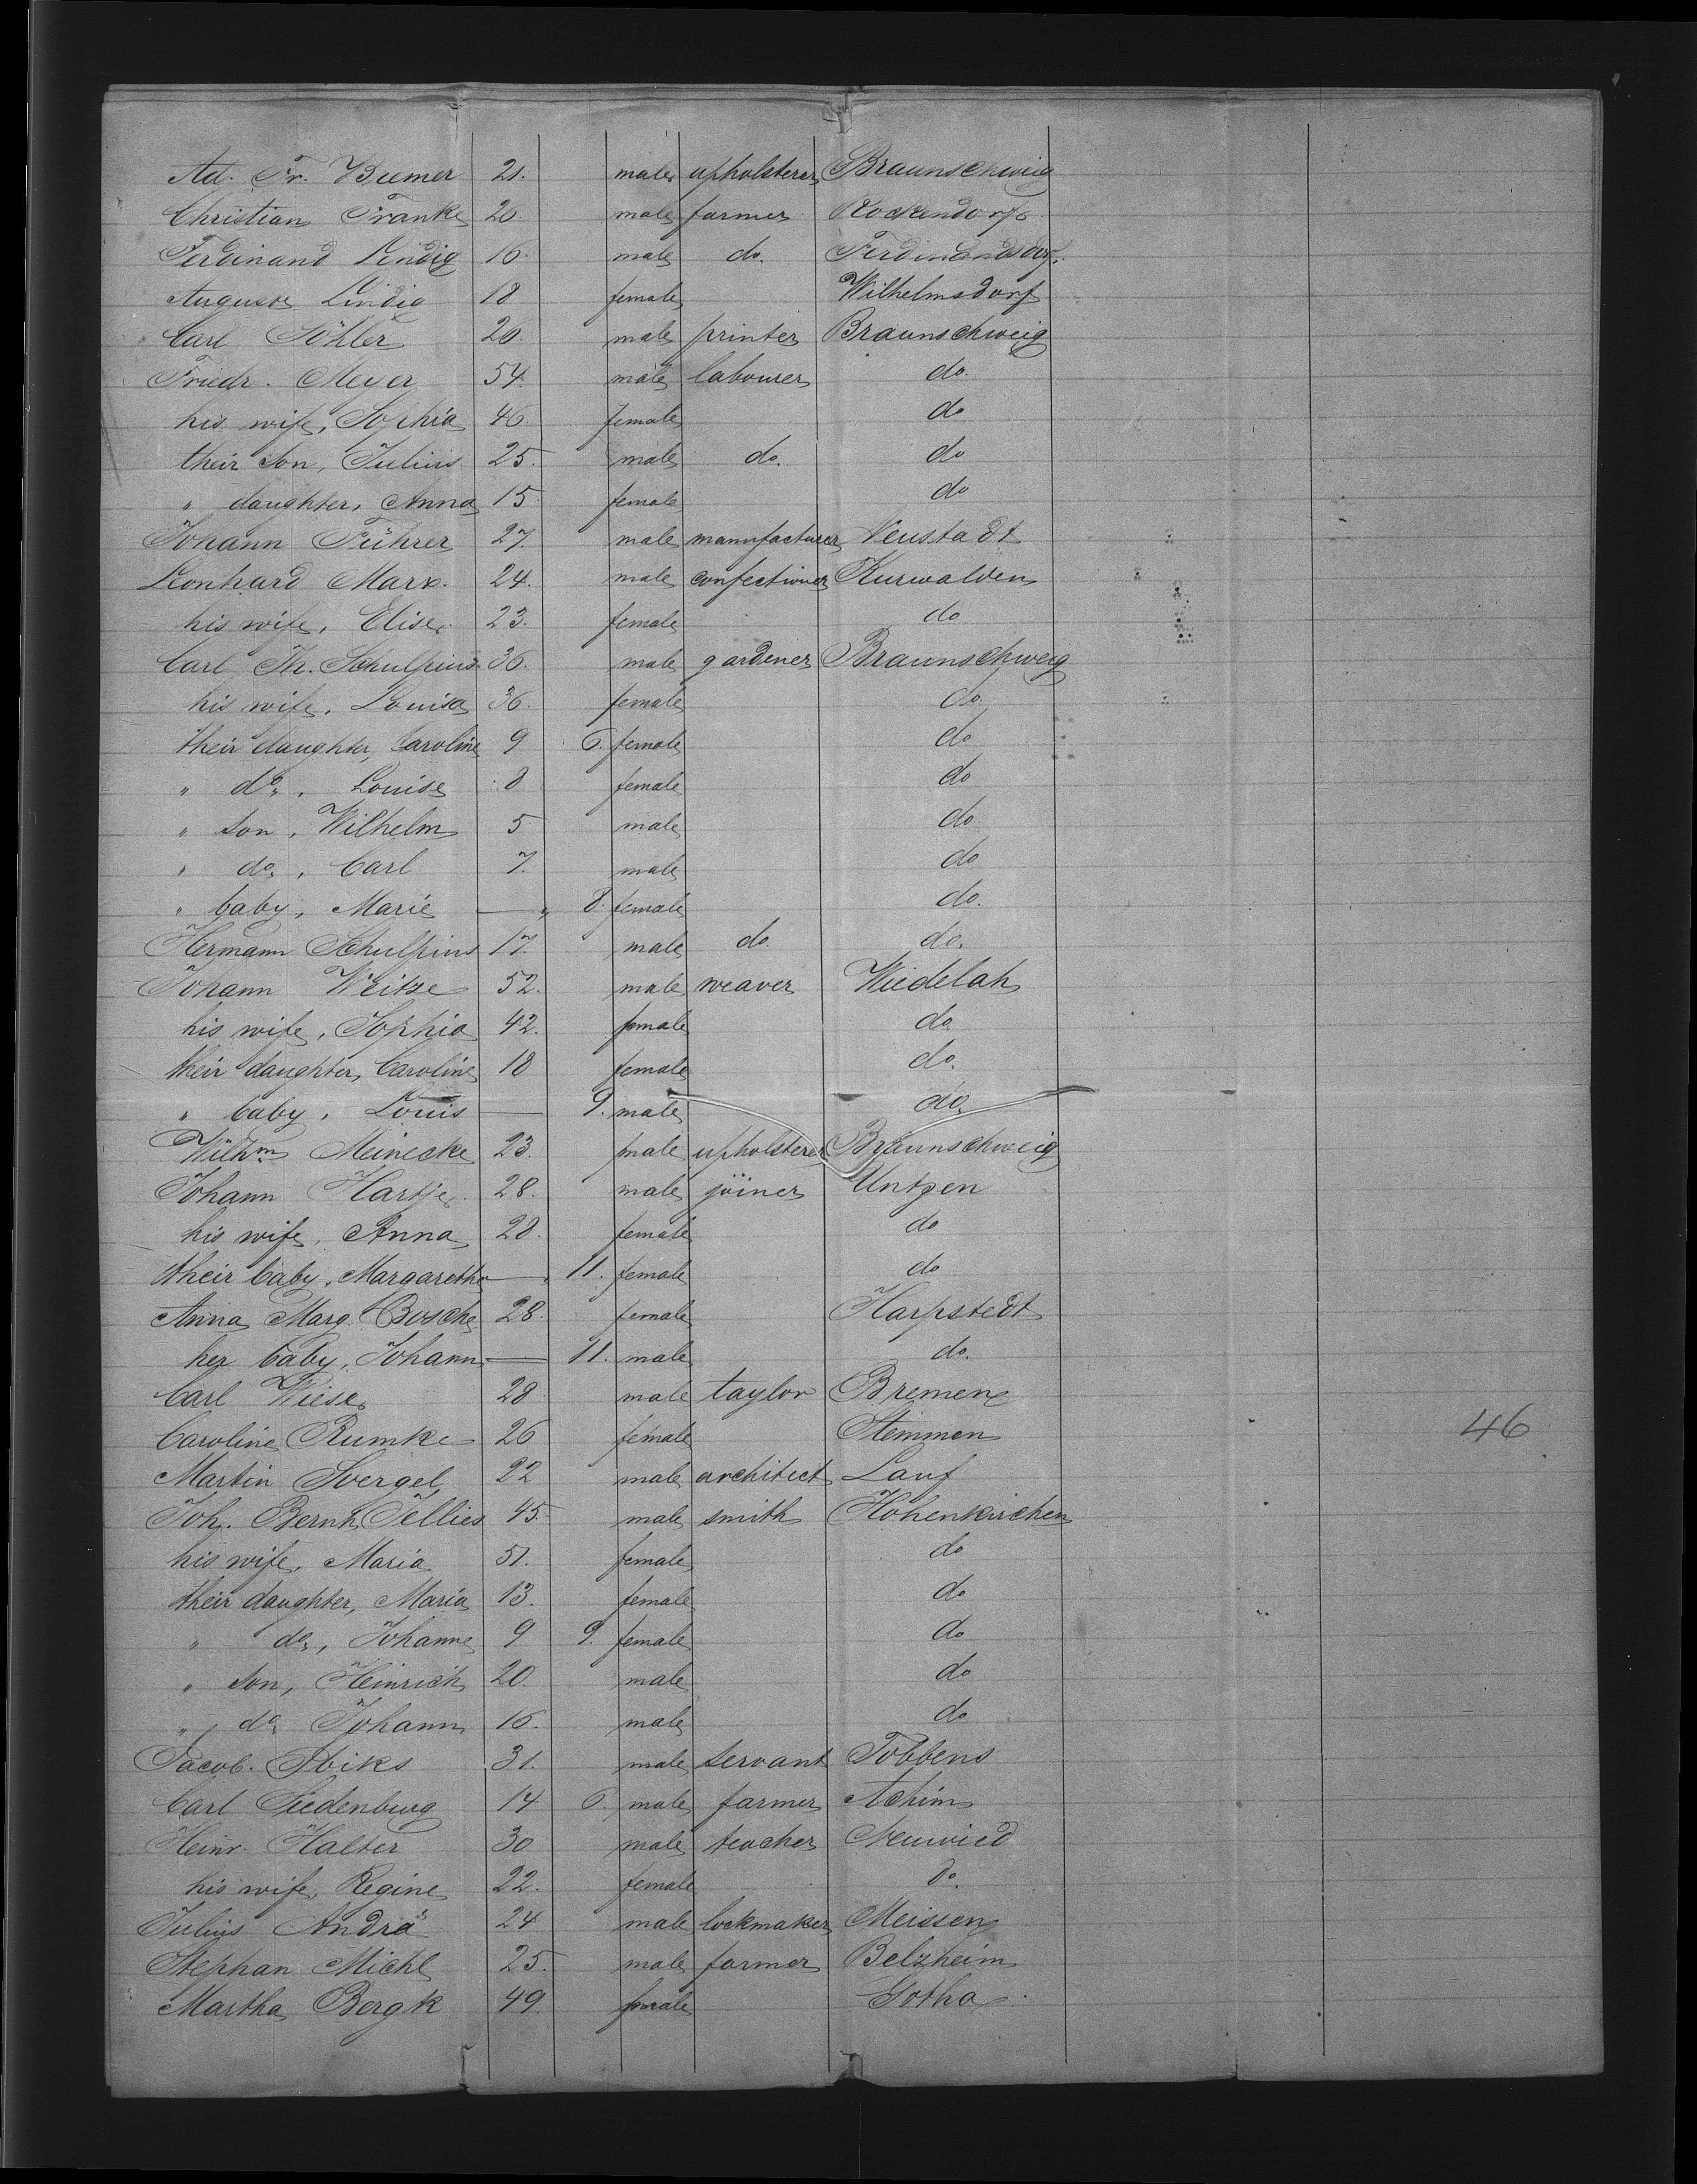 Ad. Fr. Bremer 21. male upholsterer Braunschweig
Christian Franke 26. male farmer Rockendorf
Ferdinand Lindig 16. male do. Ferdinandsdorf.
Auguste Lindig 18 female Wilhelmsdorf
Carl Töhler 20. male printer Braunschweig
Friedr. Meyer 54. male labourer do.
his wife, Sophia 46. female do
their son, Julius 25. male do. do
" daughter, Anna 15. female do
Johann Führer 27. male manufacturer Neustadt
Leonhard Marx. 24. male confectioner Kurwalden
his wife, Elise. 23. female do
Carl Th. Schulpius 36. male gardener Braunschweig
his wife, Louisa 36. female do.
their daughter, Caroline 9 6. female do
" do, Louise 8 female do
" son, Wilhelm 5 male do
" do, Carl 7. male do
" baby, Marie — " 8. female do.
Hermann Schulpius 17. male do. do.
Johann Weitze 52. male weaver Wiedelah
his wife, Sophia 42. female do
their daughter, Caroline 18 female do.
" baby, Louis — 9. male do.
Wilhm Meinecke 23. male upholsterer Braunschweig
Johann Hartje. 28. male joiner Untzen
his wife, Anna 28. female do
their baby, Margarethe — " 11. female do
Anna Marg. Bosche 28. female Harpstedt
her baby, Johann — 11. male do.
Carl Wiese 28 male taylor Bremen
Caroline Rumke 26 female Stemmen 46
Martin Svergel 22 male architect Lauf
Joh. Bernh. Tellies 45 male smith Hohenkirchen
his wife, Maria 51. female do
their daughter, Maria 13. female do
" do, Johanne 9 9. female do
" son, Heinrich 20. male do
" do, Johann 16. male do
Jacob. Ibiks 31. male servant Tobbens
Carl Siedenburg 14 6. male farmer Achim
Heinr. Halter 30 male teacher Neuwied
his wife, Regine 22. female do.
Julius Andrä 24 male lockmaker Meissen
Stephan Michl 25. male farmer Belzheim
Martha Bergk 49 female Gotha